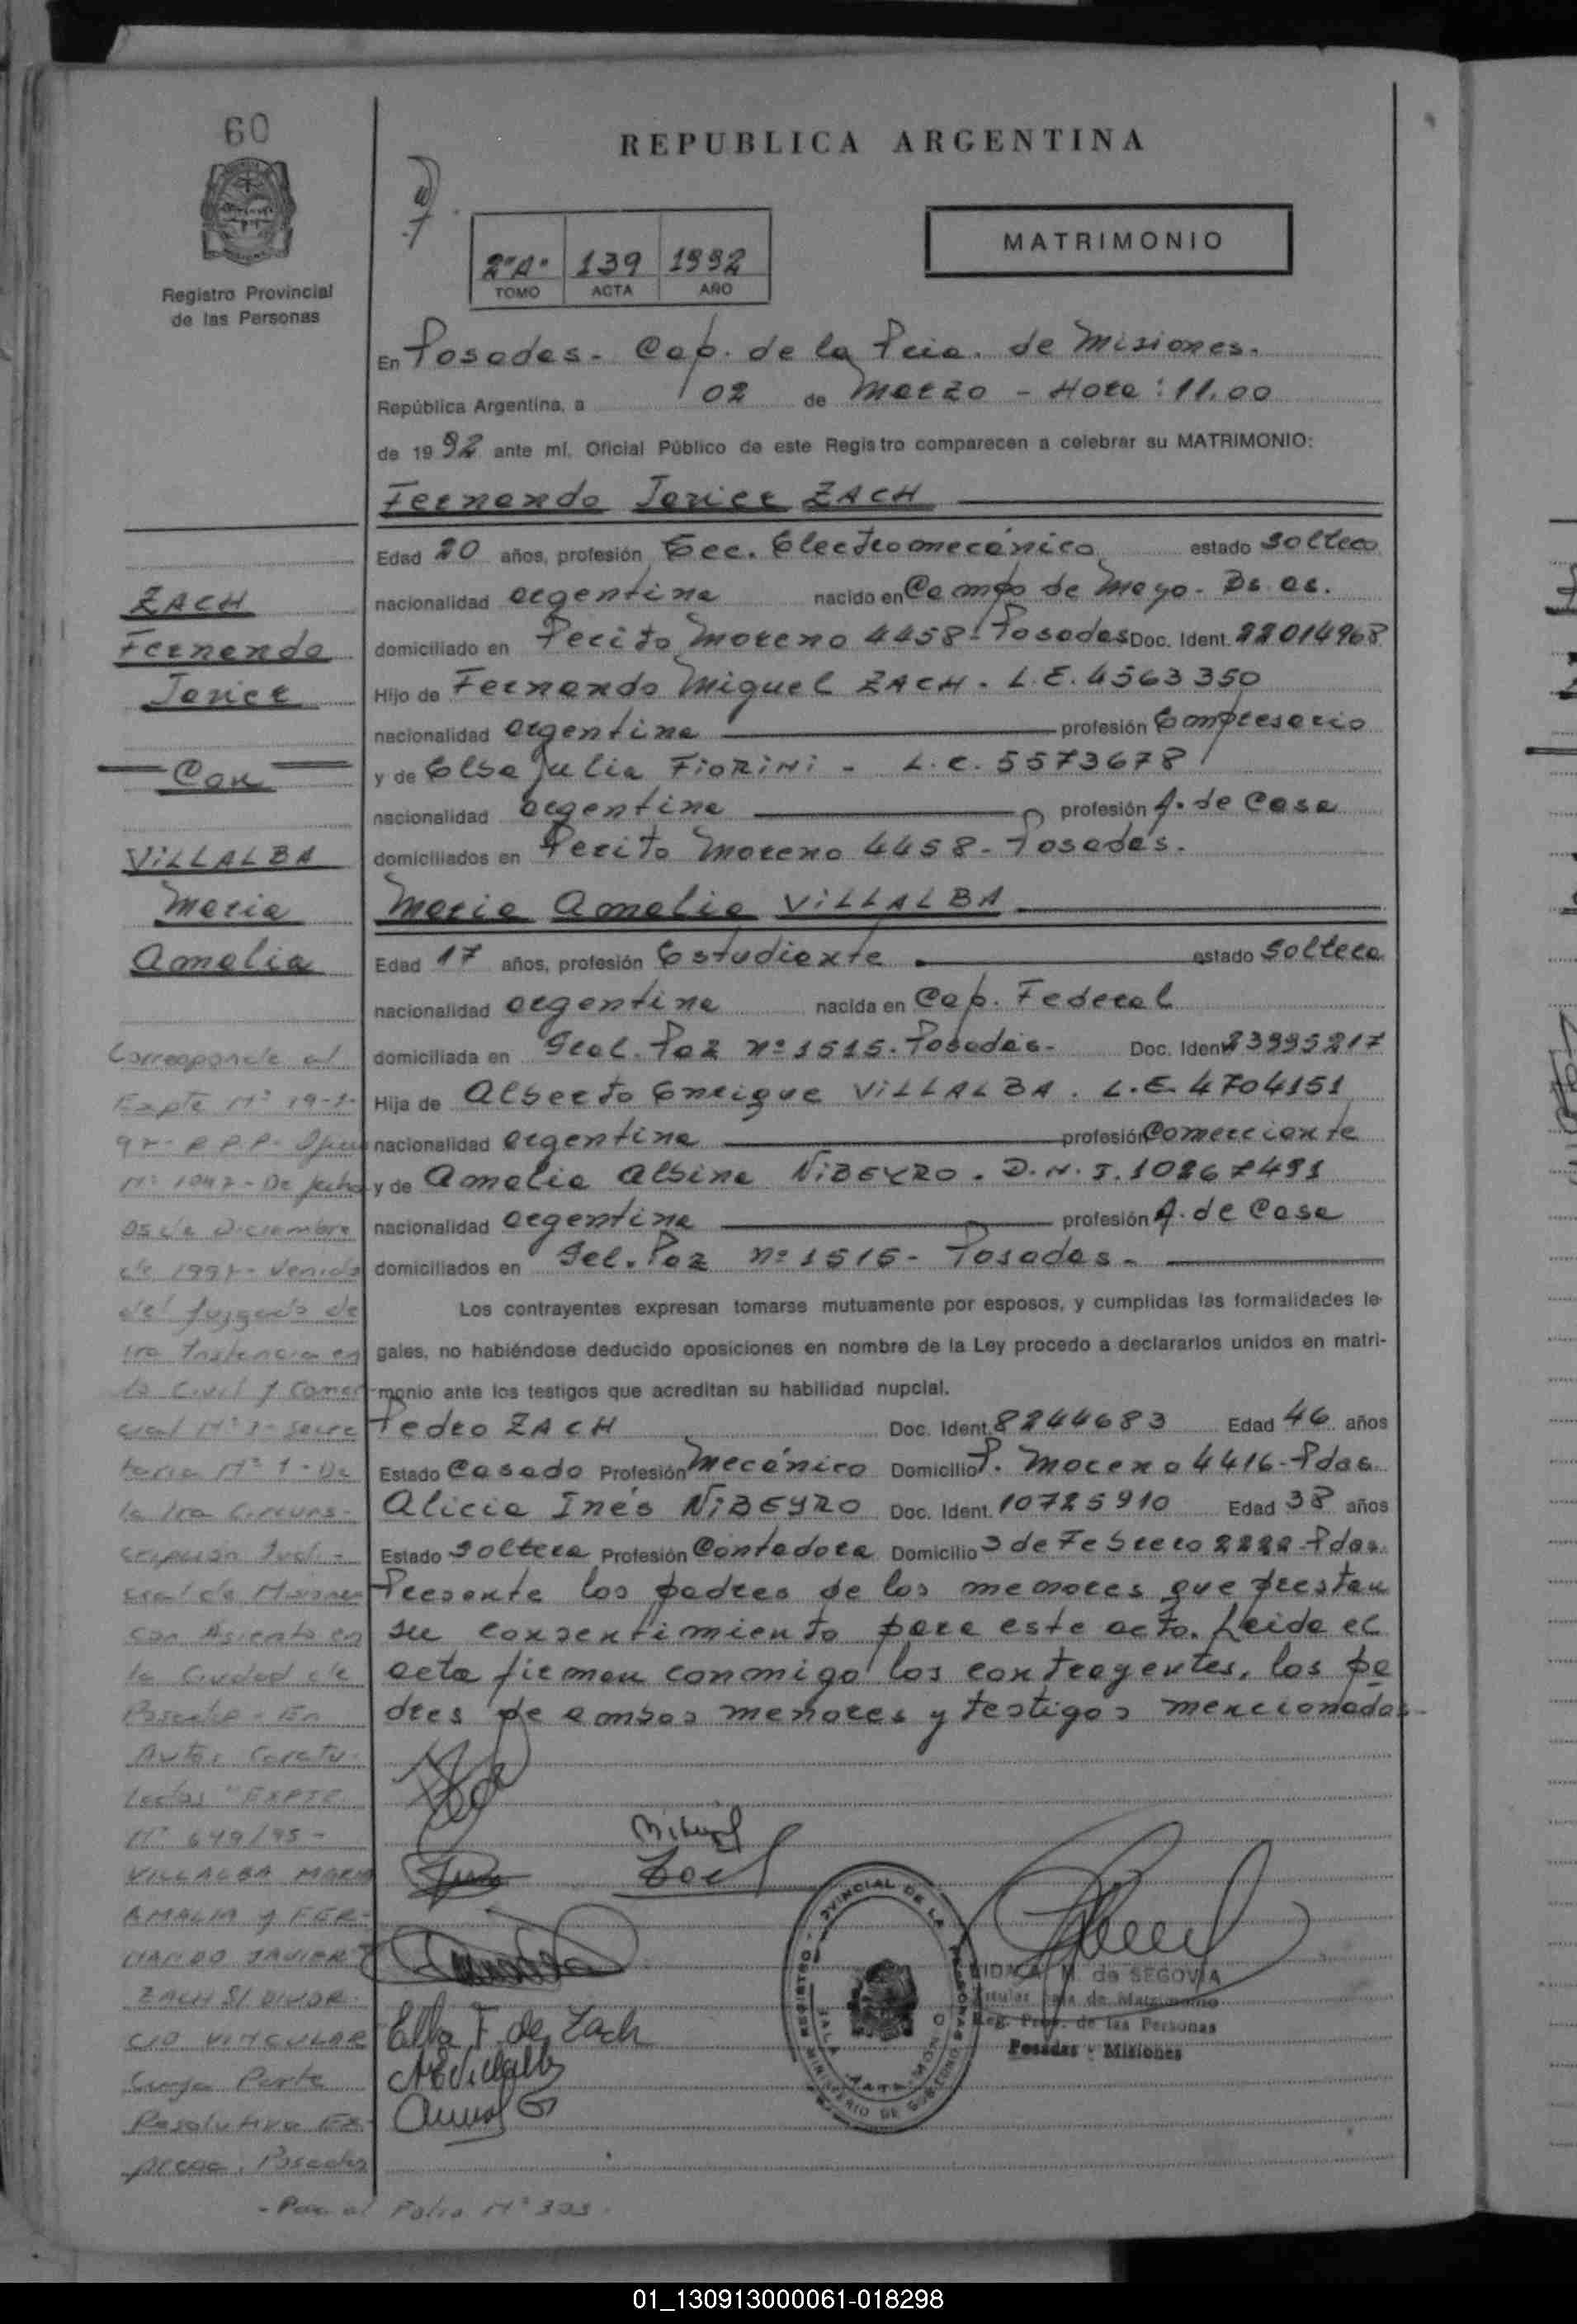 60
REPUBLICA ARGENTINA
MATRIMONIO
2"A" 139 1992
TOMO ACTA AÑO
Registro Provincial
de las Personas
En Posadas - Cap. de la Pcia. de Misiones.
República Argentina, a 02 de Marzo - Hora: 11,00
de 1992 ante mí, Oficial Público de este Registro comparecen a celebrar su MATRIMONIO:
Fernando Javier ZACH
Edad 20 años, profesión Tec. Electromecánico estado soltero
nacionalidad argentina nacido en Campo de Mayo - Bs. as.
domiciliado en Perito Moreno 4458 - Posadas Doc. Ident. 22014968
Hijo de Fernando Miguel ZACH. L.E. 4563350
nacionalidad argentina profesión Empresario
y de Elsa Julia FIORINI - L.C. 5573678
nacionalidad argentina profesión A. de Casa
domiciliados en Perito Moreno 4458 - Posadas.
Maria Amelia VILLALBA
Edad 17 años, profesión Estudiante estado Soltera
nacionalidad argentina nacida en Cap. Federal
domiciliada en Gral. Paz nº 1515 - Posadas - Doc. Ident. 23995217
Hija de Alberto Enrique VILLALBA. L.E. 4704151
nacionalidad argentina profesión Comerciante
y de Amelia Albina NIBEYRO. D.N.I. 10267491
nacionalidad argentina profesión A. de Casa
domiciliados en Gel. Paz nº 1515 - Posadas -
Los contrayentes expresan tomarse mutuamente por esposos, y cumplidas las formalidades le-
gales, no habiéndose deducido oposiciones en nombre de la Ley procedo a declararlos unidos en matri-
monio ante los testigos que acreditan su habilidad nupcial.
Pedro ZACH Doc. Ident. 8244683 Edad 46 años
Estado Casado Profesión Mecánico Domicilio P. Moreno 4416 - Pdas.
Alicia Inés NIBEYRO Doc. Ident. 10725910 Edad 38 años
Estado soltera Profesión Contadora Domicilio 3 de Febrero 2222 - Pdas.
Presente los padres de los menores que prestan
su consentimiento para este acto. Leida el
acta firman conmigo los contrayentes, los pa
dres de ambos menores y testigos mencionados -
ZACH
Fernando
Javier
Con
VILLALBA
Maria
Amelia
Corresponde al
Expte Nº 19-1-
97 - R.P.P. -
Nº 1047 - De fecha
05 de Diciembre
de 1997 - Venido
del Juzgado de
1ra Instancia en
lo Civil y Comer
cial Nº 1 - Secre
taria Nº 1 - De
la 1ra Circuns-
cripción Judi-
cial de Misiones
con Asiento en
la Ciudad de
Posadas - En
Autos Caratu-
lados "EXPTE
Nº 649/95 -
VILLALBA MARIA
AMALIA y FER-
NANDO JAVIER
ZACH S/ DIVOR-
CIO VINCULAR
Cuya Parte
Resolutiva Ex-
presa. Posadas
- Pasa al Folio Nº 303 -
Elba F. de Zach
M. de SEGOVIA
Titular de Matrimonio
Reg. Prov. de las Personas
Posadas - Misiones
REGISTRO PROVINCIAL DE LAS PERSONAS
MINISTERIO DE GOBIERNO
01_130913000061-018298